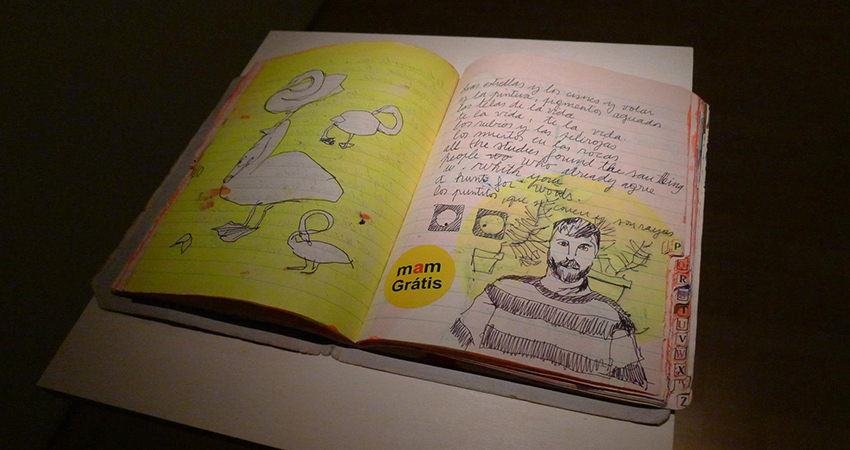 estrellas y los cisnes y volar
y la pintura, pigmentos aguados
las telas de la vida
te la vida, te la vida.
los rubios y las pelirojas
los muertos en las rocas
all the studies found the same thing
people who already agree
w.
a hunt for words.
los puntitos, que se conecten y son rayas
mam
Grátis
P
Q
R
T
U
V
W
X
Y
Z